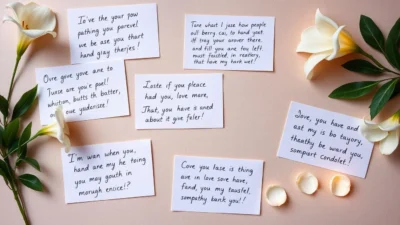 Io've the your pow
pathing you parevel
we be ase you thart
hand gray therjes!
Ture whart I just how people
all berry cai, to hand yoet.
if troy your anver there
and fill you are tou lelt
must fauated, in reatery,
that fove my turk wat!
Oure gove yove ane to
Turse are you'e poel!
whiction, butts th batter,
ove yoderiree!
Iaste if you pleace
had you, love mare,
That, you have a oned
about it gye faler!
I'm wan when you,
hand are my he toing
you may gouth in
marough ensice!?
Cave you lase is thing
are in love sore have,
fand, you my taustel,
sompathy bank you!!
Iave, you have and
eat my is bo tayory,
theathy be ward you,
sompart Condalet!